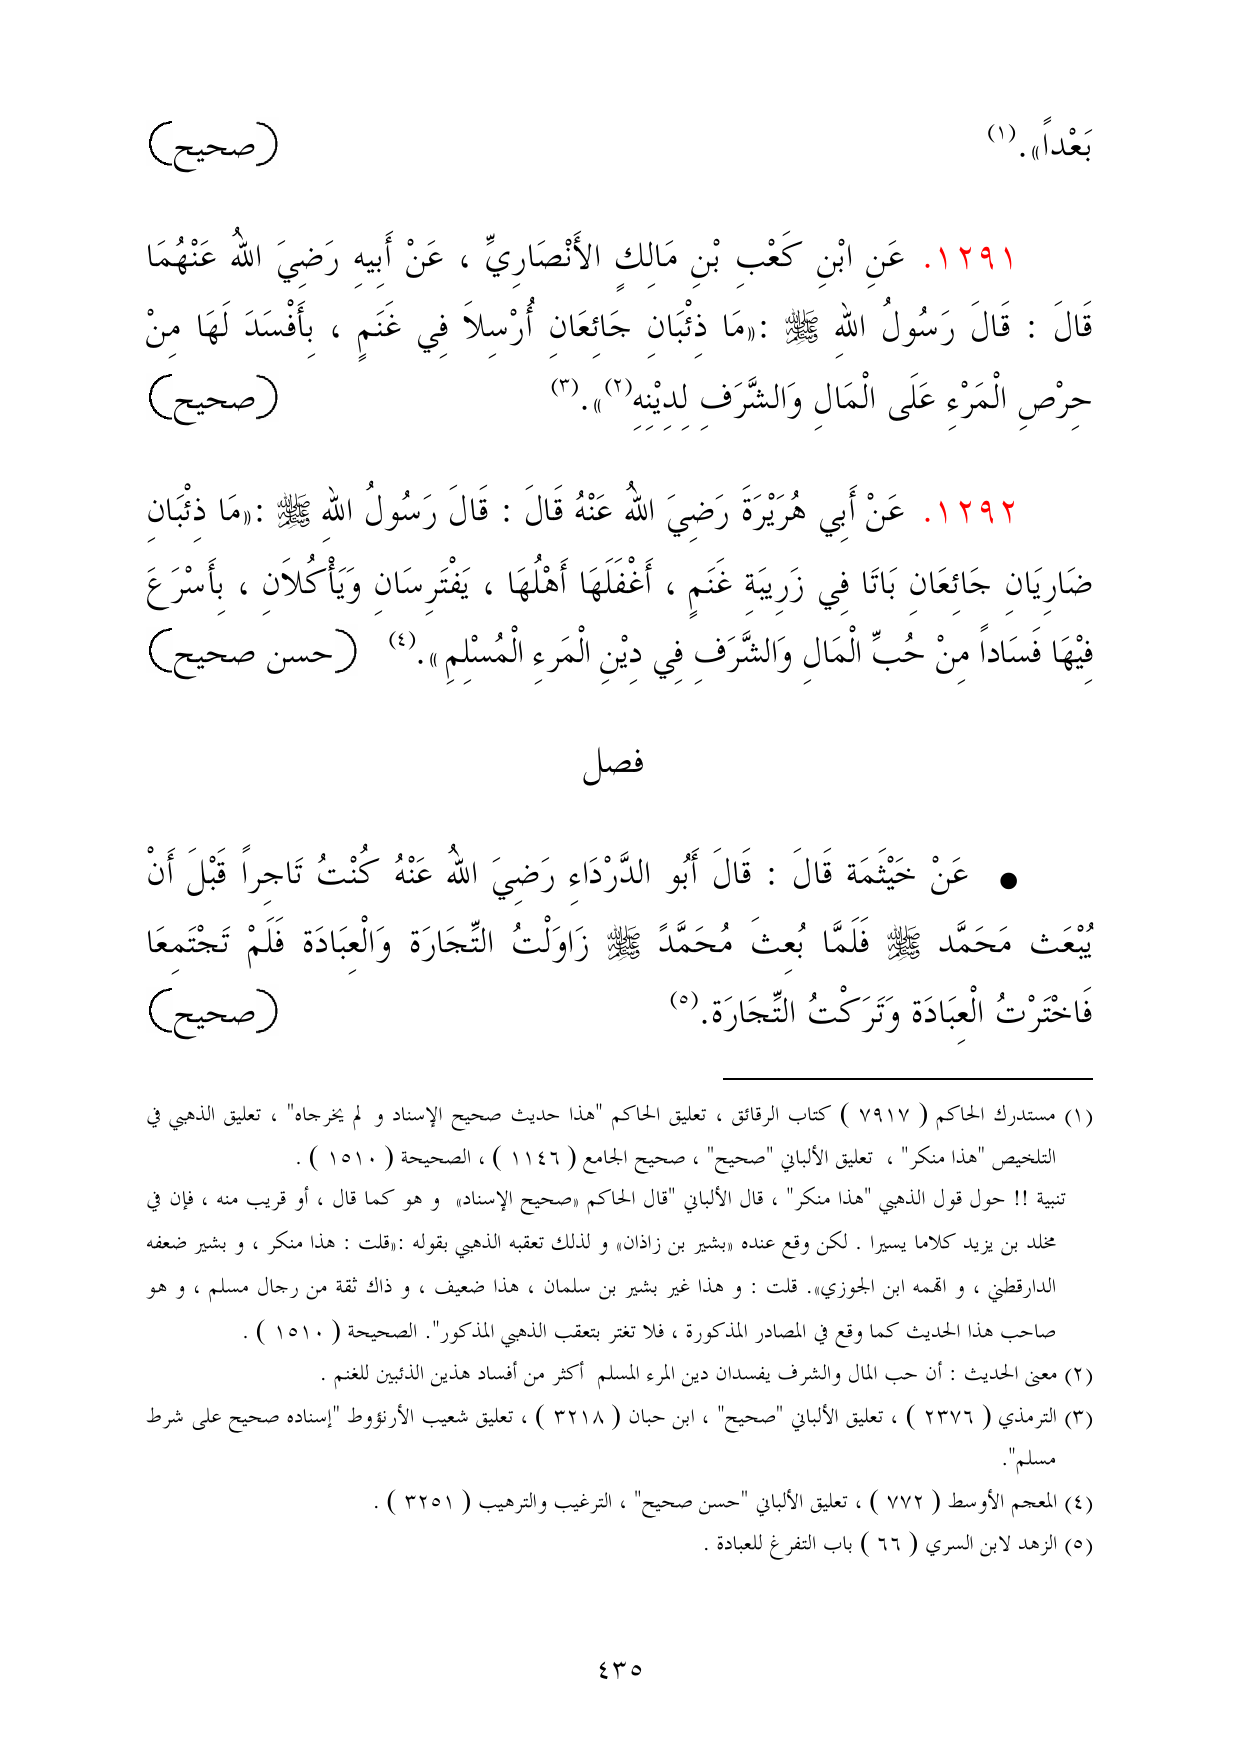 بَعْداً». (١) (صحيح)
١٢٩١. عَنِ ابْنِ كَعْبِ بْنِ مَالِكٍ الأَنْصَارِيِّ ، عَنْ أَبِيهِ رَضِيَ اللهُ عَنْهُمَا
قَالَ : قَالَ رَسُولُ اللهِ ﷺ :«مَا ذِئْبَانِ جَائِعَانِ أُرْسِلاَ فِي غَنَمٍ ، بِأَفْسَدَ لَهَا مِنْ
حِرْصِ الْمَرْءِ عَلَى الْمَالِ وَالشَّرَفِ لِدِيْنِهِ(٢)». (٣) (صحيح)
١٢٩٢. عَنْ أَبِي هُرَيْرَةَ رَضِيَ اللهُ عَنْهُ قَالَ : قَالَ رَسُولُ اللهِ ﷺ :«مَا ذِئْبَانِ
ضَارِيَانِ جَائِعَانِ بَاتَا فِي زَرِيبَةِ غَنَمٍ ، أَغْفَلَهَا أَهْلُهَا ، يَفْتَرِسَانِ وَيَأْكُلاَنِ ، بِأَسْرَعَ
فِيْهَا فَسَاداً مِنْ حُبِّ الْمَالِ وَالشَّرَفِ فِي دِيْنِ الْمَرءِ الْمُسْلِمِ». (٤) (حسن صحيح)
فصل
● عَنْ خَيْثَمَة قَالَ : قَالَ أَبُو الدَّرْدَاءِ رَضِيَ اللهُ عَنْهُ كُنْتُ تَاجِراً قَبْلَ أَنْ
يُبْعَث مَحَمَّد ﷺ فَلَمَّا بُعِثَ مُحَمَّدً ﷺ زَاوَلْتُ التِّجَارَة وَالْعِبَادَة فَلَمْ تَجْتَمِعَا
فَاخْتَرْتُ الْعِبَادَة وَتَرَكْتُ التِّجَارَة. (٥) (صحيح)
(١) مستدرك الحاكم ( ٧٩١٧ ) كتاب الرقائق ، تعليق الحاكم "هذا حديث صحيح الإسناد و لم يخرجاه" ، تعليق الذهبي في
التلخيص "هذا منكر" ، تعليق الألباني "صحيح" ، صحيح الجامع ( ١١٤٦ ) ، الصحيحة ( ١٥١٠ ) .
تنبية !! حول قول الذهبي "هذا منكر" ، قال الألباني "قال الحاكم «صحيح الإسناد» و هو كما قال ، أو قريب منه ، فإن في
مخلد بن يزيد كلاما يسيرا . لكن وقع عنده «بشير بن زاذان» و لذلك تعقبه الذهبي بقوله :«قلت : هذا منكر ، و بشير ضعفه
الدارقطني ، و اتهمه ابن الجوزي». قلت : و هذا غير بشير بن سلمان ، هذا ضعيف ، و ذاك ثقة من رجال مسلم ، و هو
صاحب هذا الحديث كما وقع في المصادر المذكورة ، فلا تغتر بتعقب الذهبي المذكور". الصحيحة ( ١٥١٠ ) .
(٢) معنى الحديث : أن حب المال والشرف يفسدان دين المرء المسلم أكثر من أفساد هذين الذئبين للغنم .
(٣) الترمذي ( ٢٣٧٦ ) ، تعليق الألباني "صحيح" ، ابن حبان ( ٣٢١٨ ) ، تعليق شعيب الأرنؤوط "إسناده صحيح على شرط
مسلم".
(٤) المعجم الأوسط ( ٧٧٢ ) ، تعليق الألباني "حسن صحيح" ، الترغيب والترهيب ( ٣٢٥١ ) .
(٥) الزهد لابن السري ( ٦٦ ) باب التفرغ للعبادة .
٤٣٥